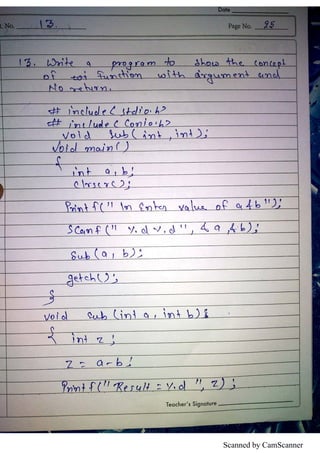 Date
t. No. 13.
Page No. 85
13. Write a program to show the concept
of function with argument and
No return.
# include< stdio.h>
# include < Conio.h>
void Sub( int , int );
Void main()
{
int a, b;
clrscr();
Print f(" \n Enter value of a & b");
Scanf (" %d %d", & a, & b);
Sub (a, b);
getch();
}
void Sub (int a, int b)
{ int z ;
z = a-b;
Print f("Result = %d ", z) ;
Teacher's Signature
Scanned by CamScanner